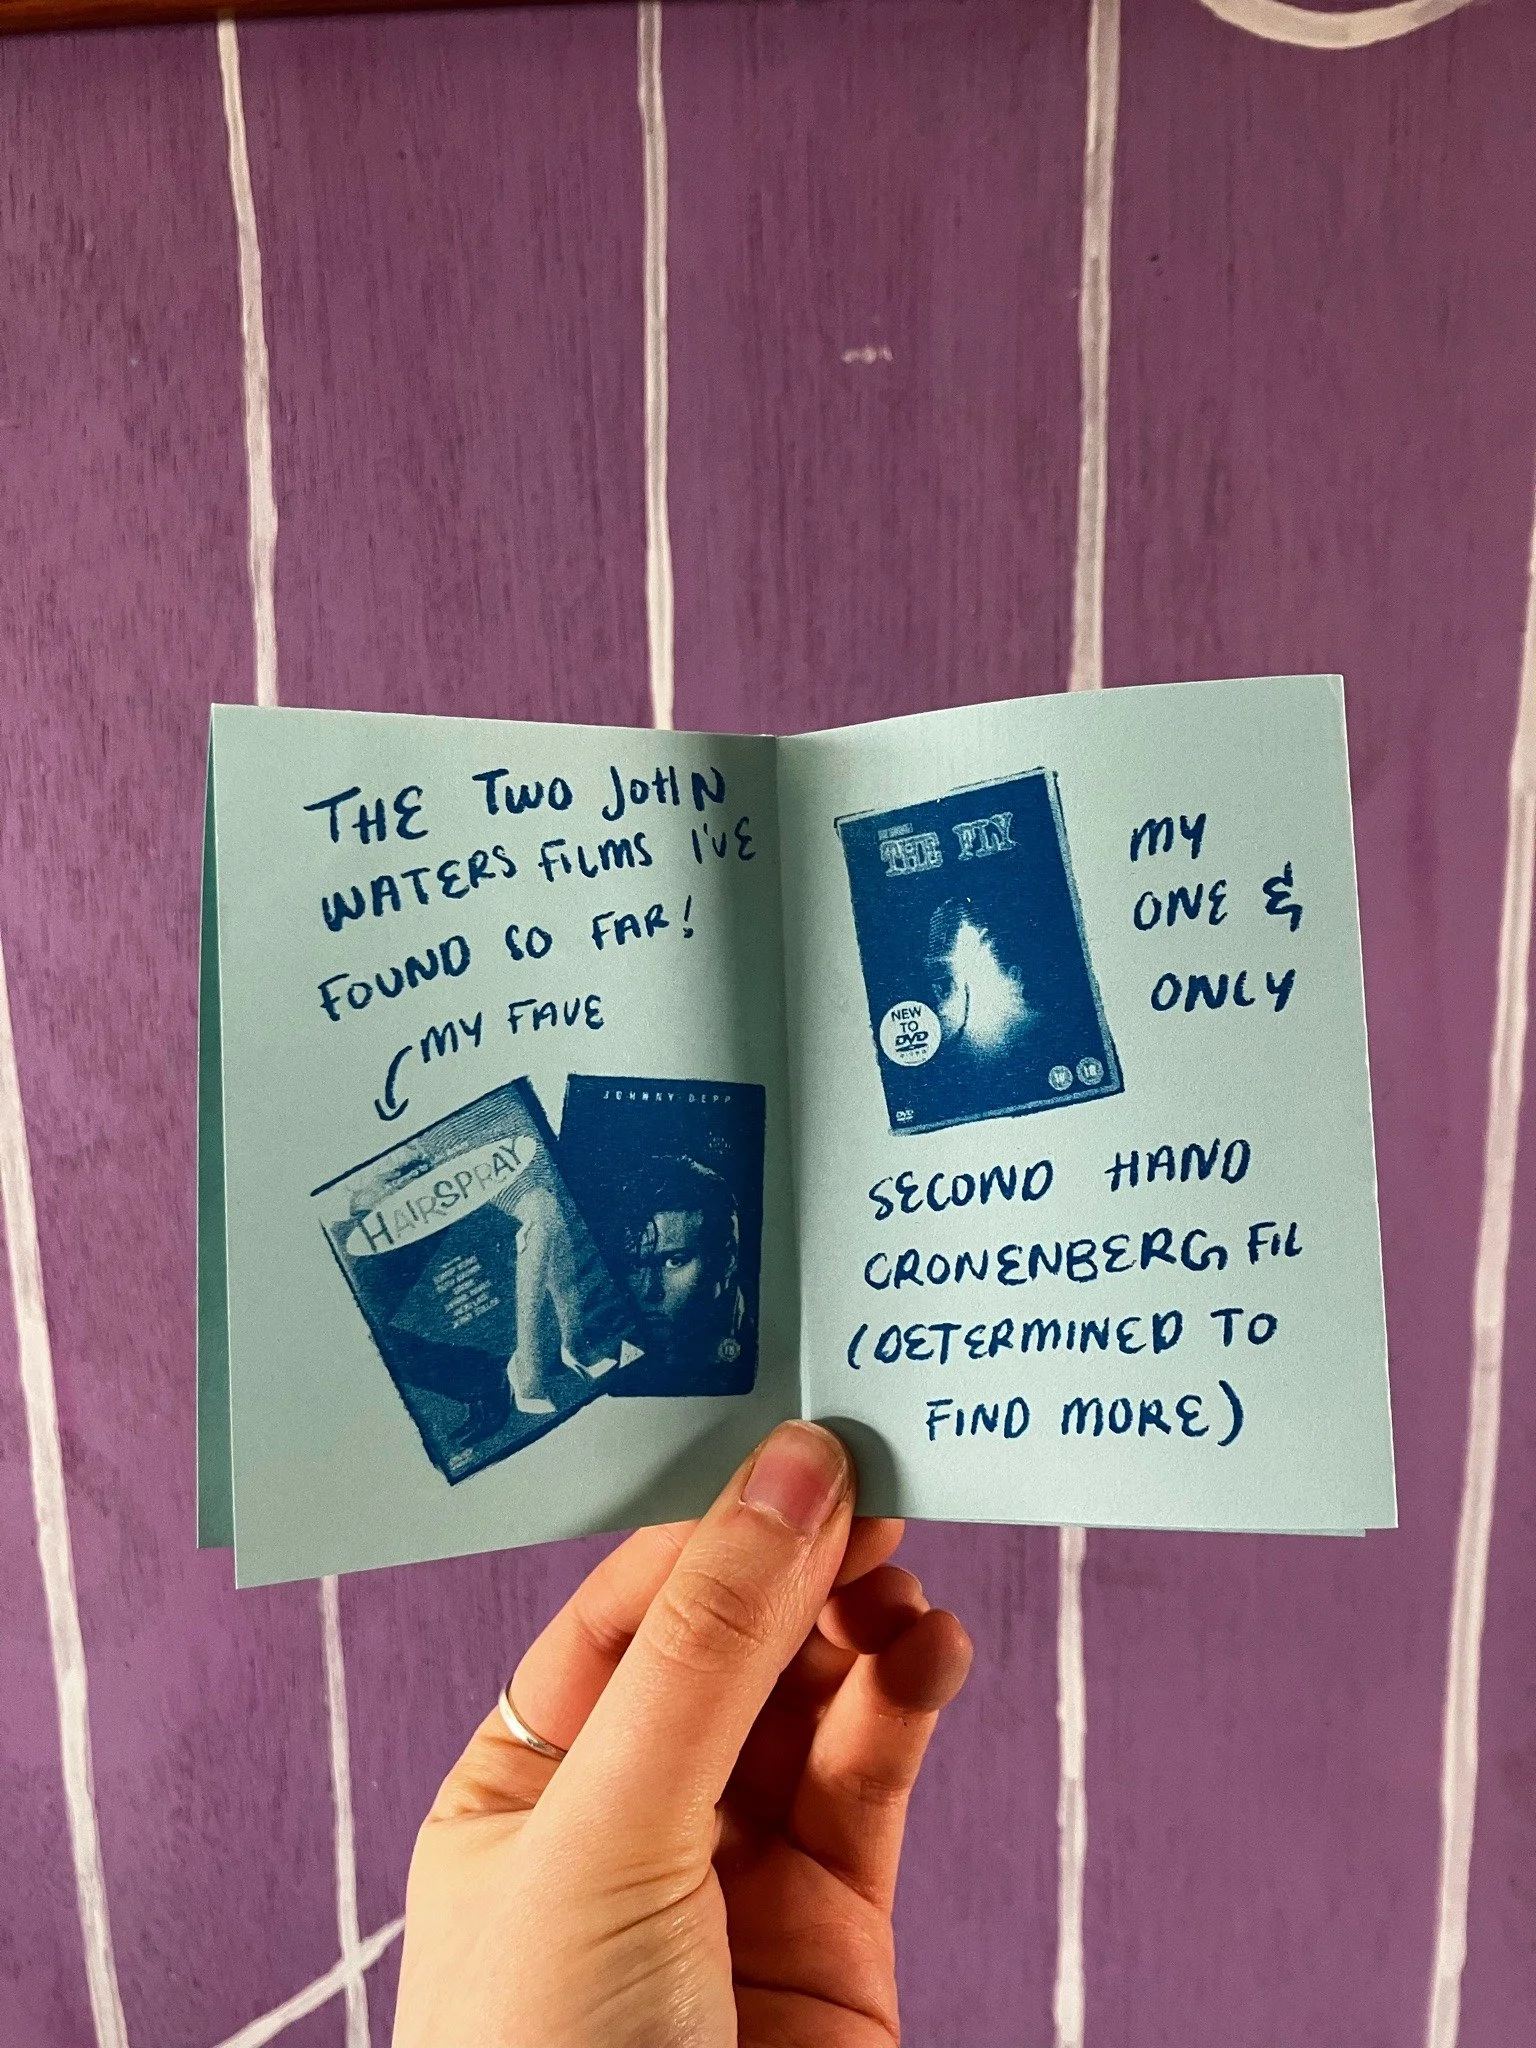 THE TWO JOHN
WATERS FILMS I'VE
FOUND SO FAR!
MY FAVE
HAIRSPRAY
JOHNNY DEPP
THE FLY
NEW
TO
DVD
DVD
18
MY
ONE &
ONLY
SECOND HAND
CRONENBERG FIL
(DETERMINED TO
FIND MORE)